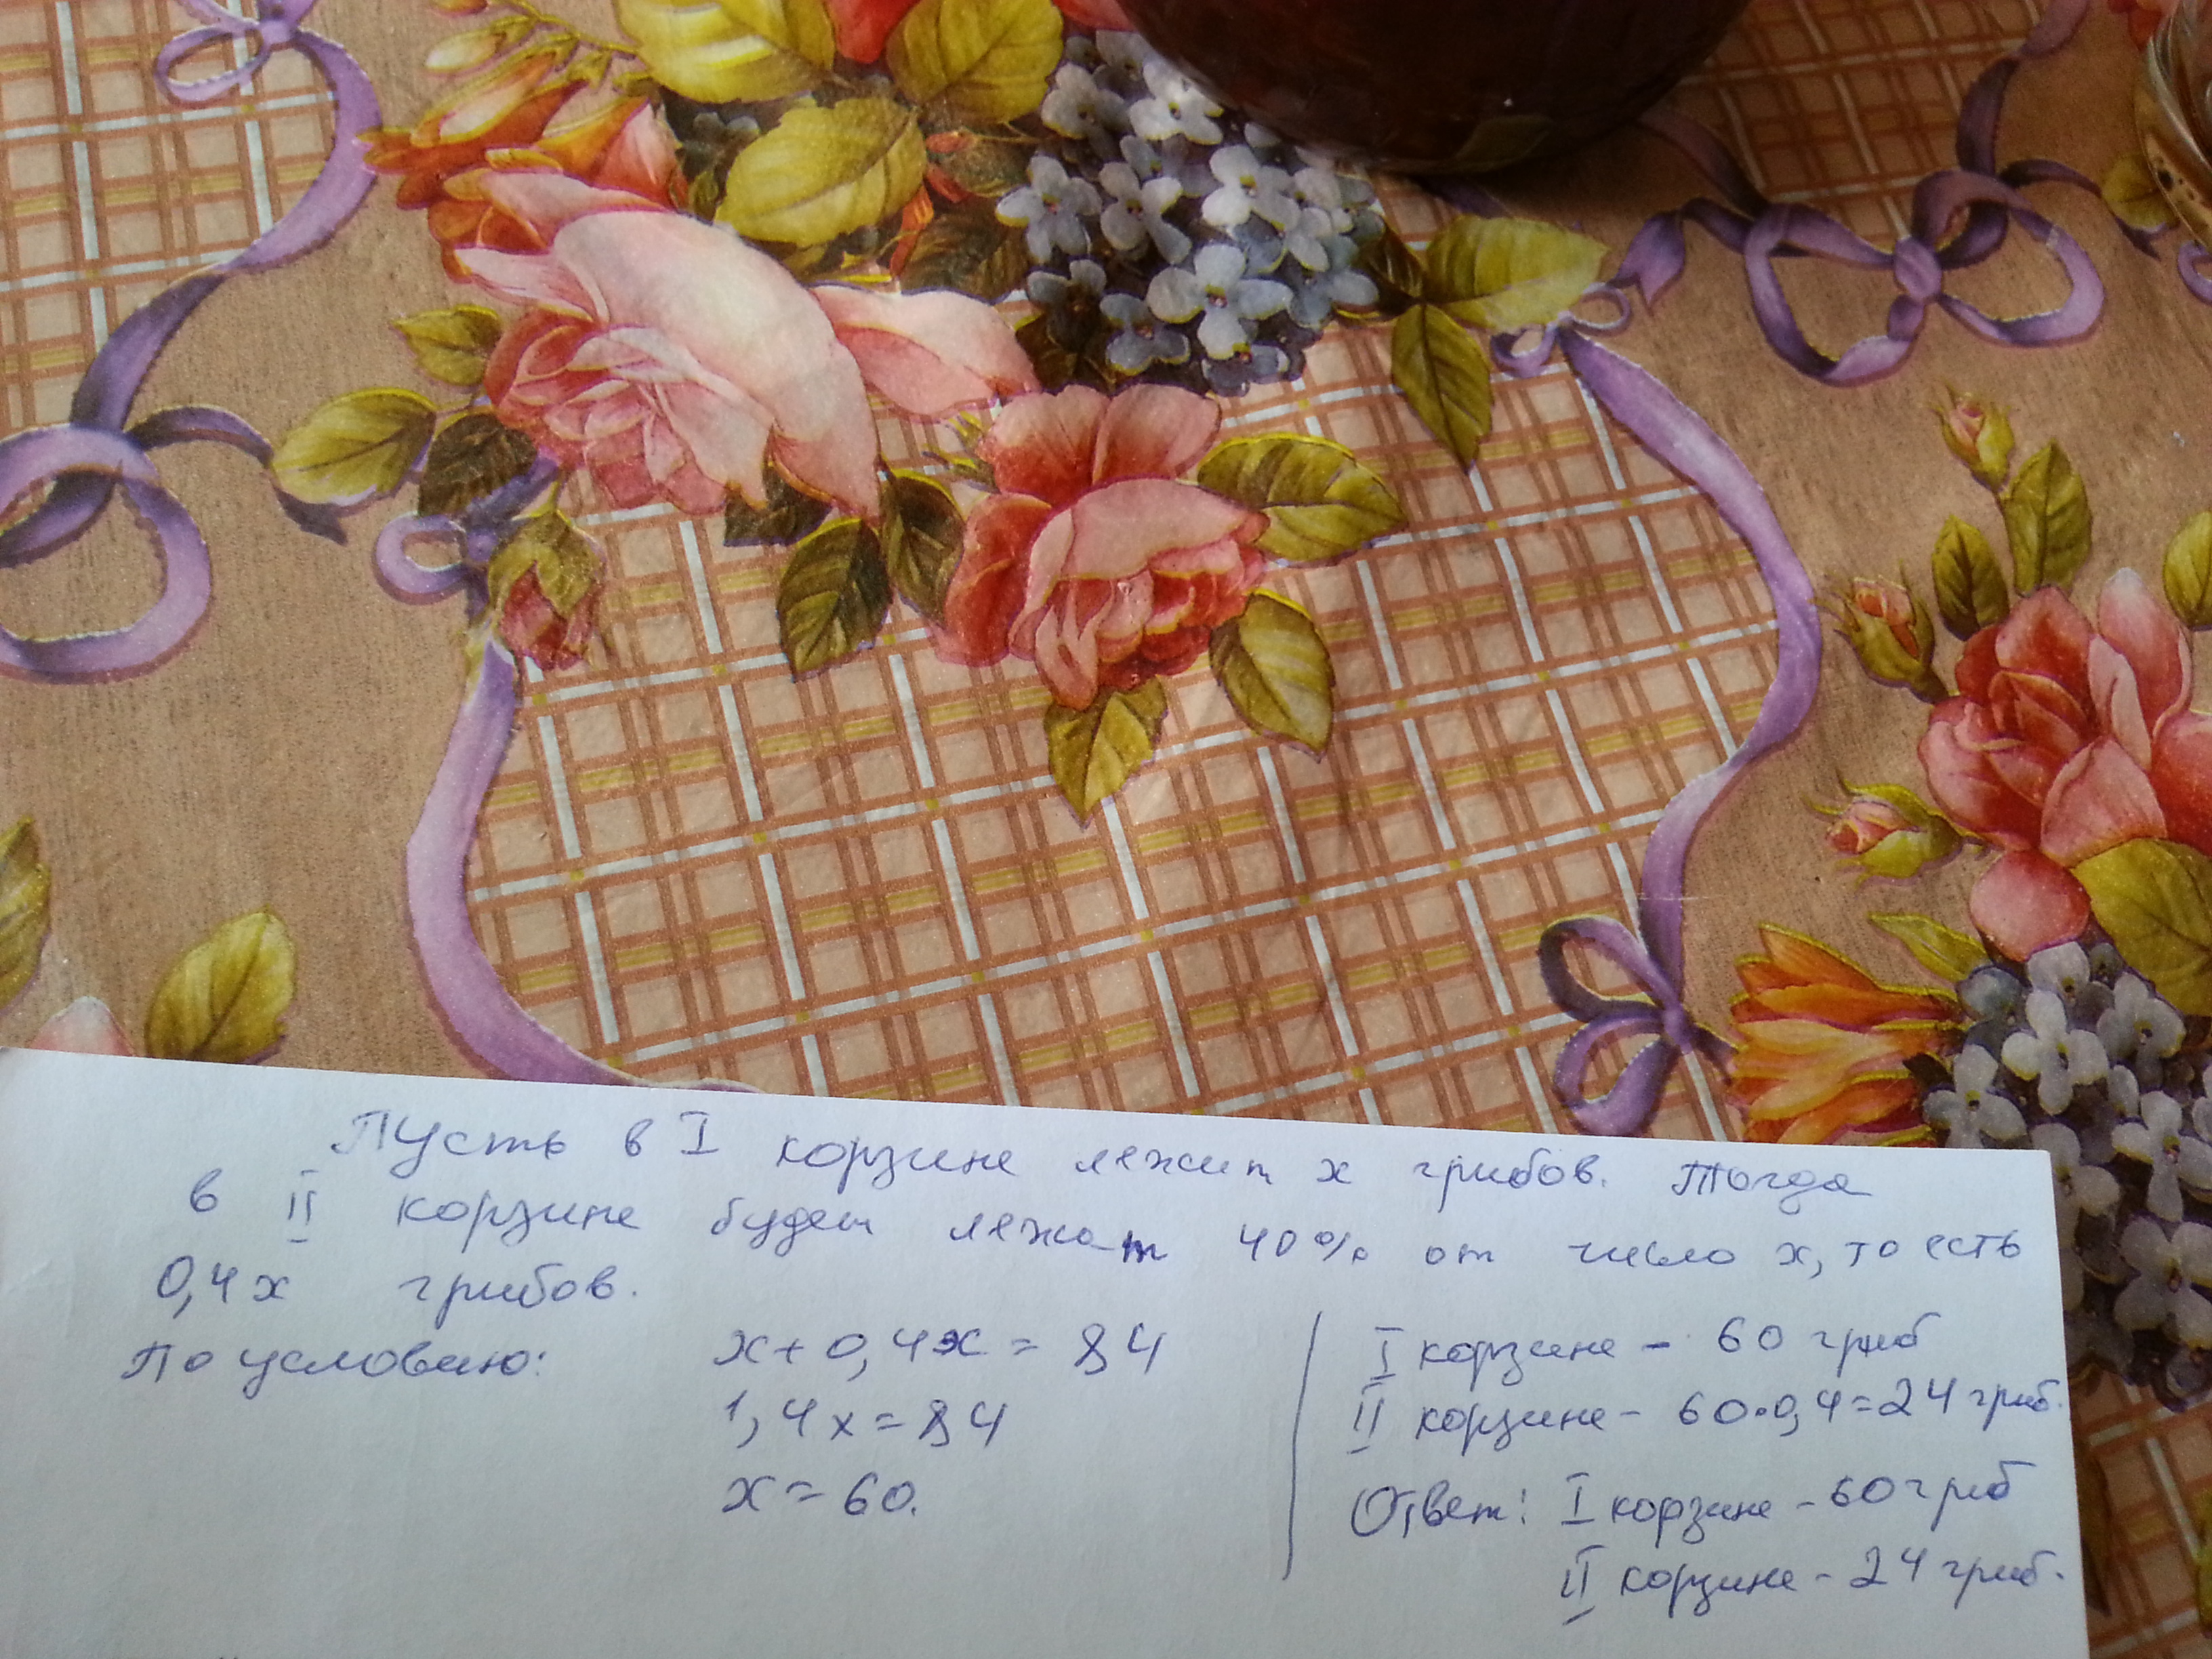 Пусть в I корзине лежит х грибов. Тогда
в II корзине будет лежат 40% от число х, то есть
0,4х грибов.
По условию:
х + 0,4х = 84
1,4х = 84
х = 60.
I корзине - 60 гриб
II корзине - 60•0,4=24 гриб.
Ответ: I корзине - 60 гриб
II корзине - 24 гриб.